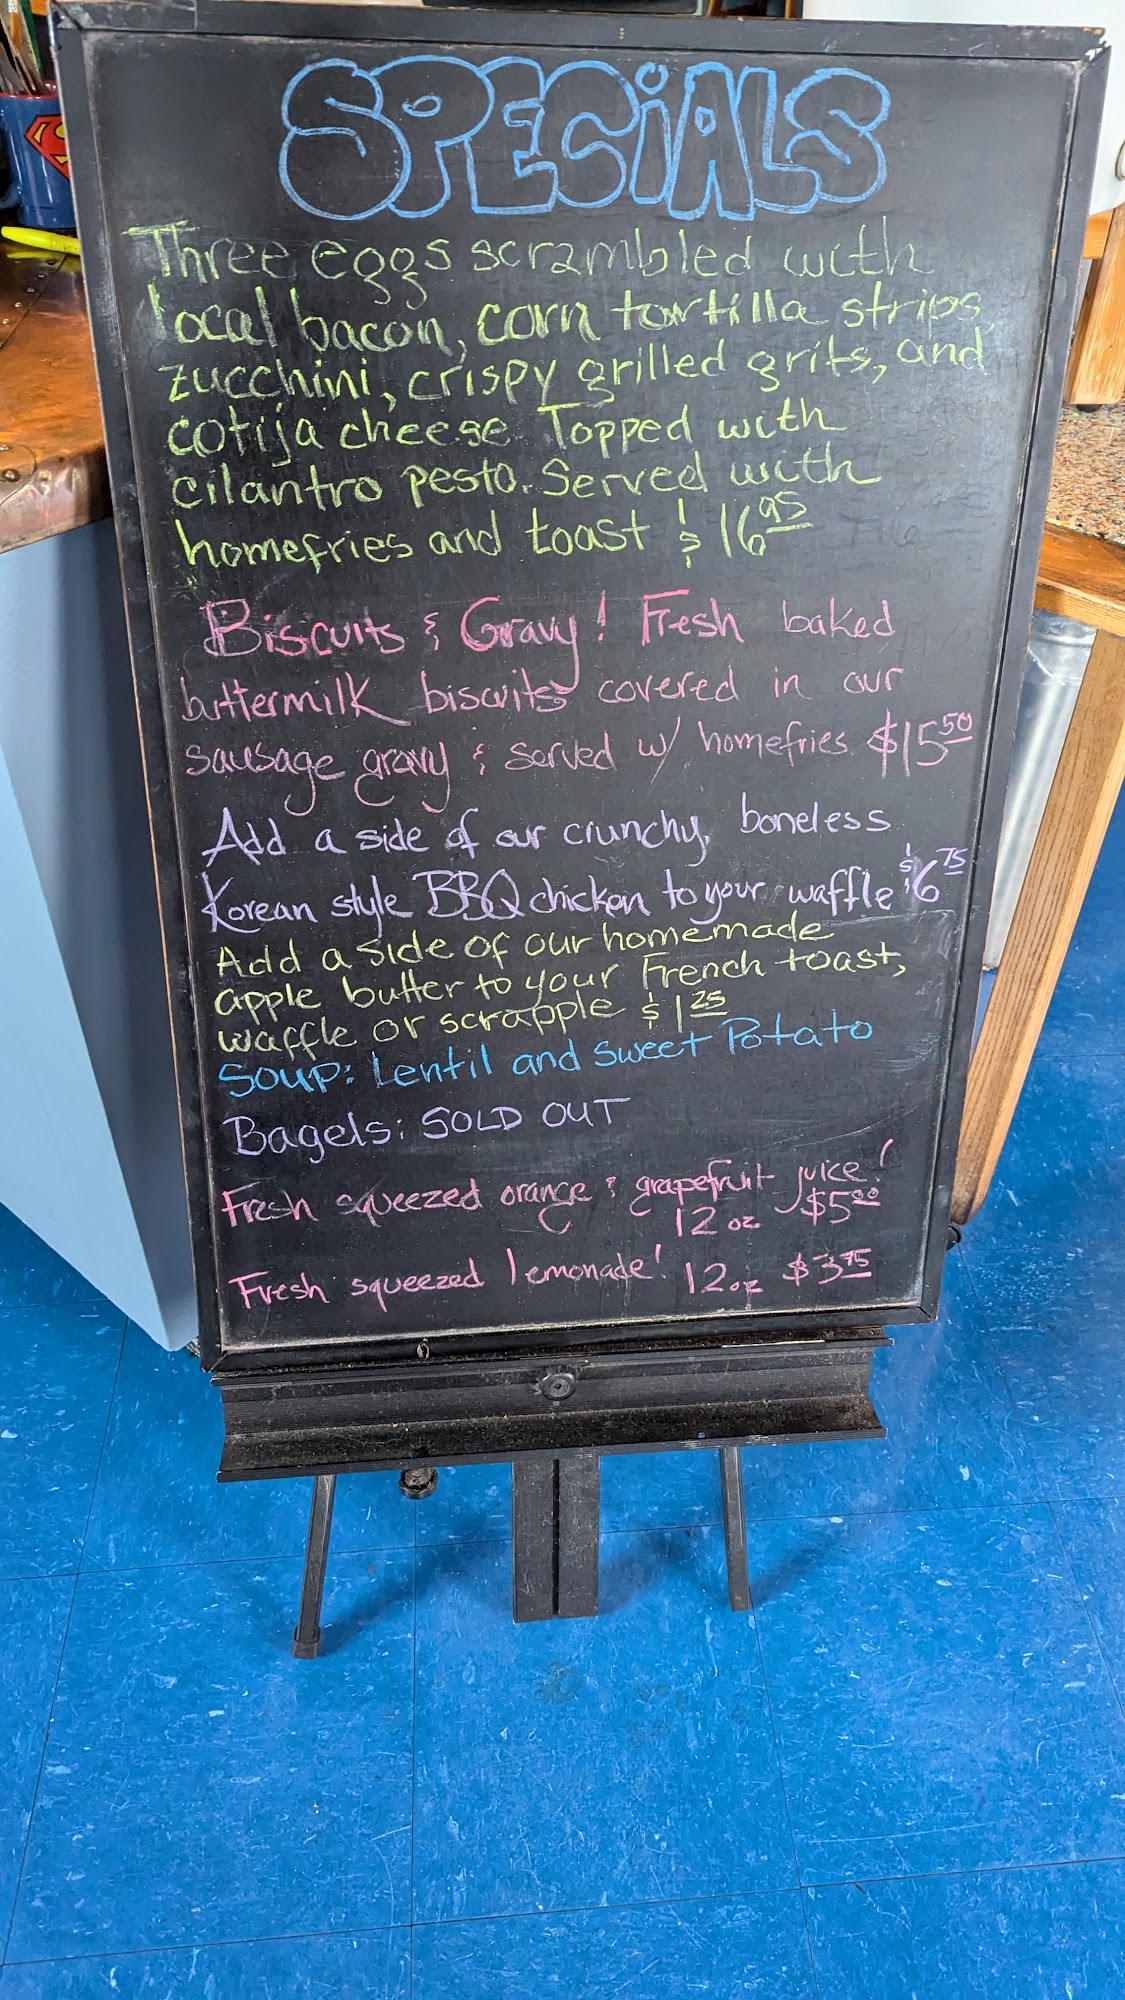 SPECIALS
Three eggs scrambled with
local bacon, corn tortilla strips,
zucchini, crispy grilled grits, and
cotija cheese. Topped with
cilantro pesto. Served with
homefries and toast $16.95
Biscuits & Gravy! Fresh baked
buttermilk biscuits covered in our
sausage gravy & served w/ homefries. $15.50
Add a side of our crunchy, boneless
Korean style BBQ chicken to your waffle $6.75
Add a side of our homemade
apple butter to your French toast,
waffle or scrapple $1.25
Soup: Lentil and Sweet Potato
Bagels: SOLD OUT
Fresh squeezed orange & grapefruit juice!
12 oz $5.00
Fresh squeezed lemonade! 12oz $3.75